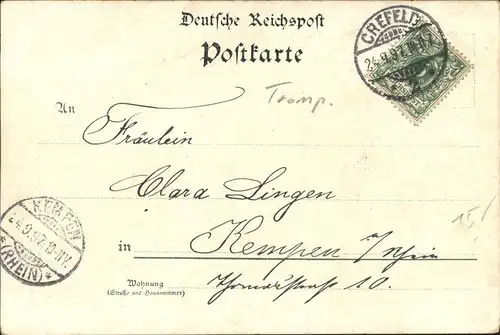 Deutsche Reichspost
Postkarte
CREFELD
24.9.97.
Tromp.
An
Fräulein
Clara Lingen
15/
in Kempen i/Rhein
Wohnung
(Straße und Hausnummer)
Thomasstrasse 10.
KEMPEN
24.9.97.10-11V.
*(RHEIN)*